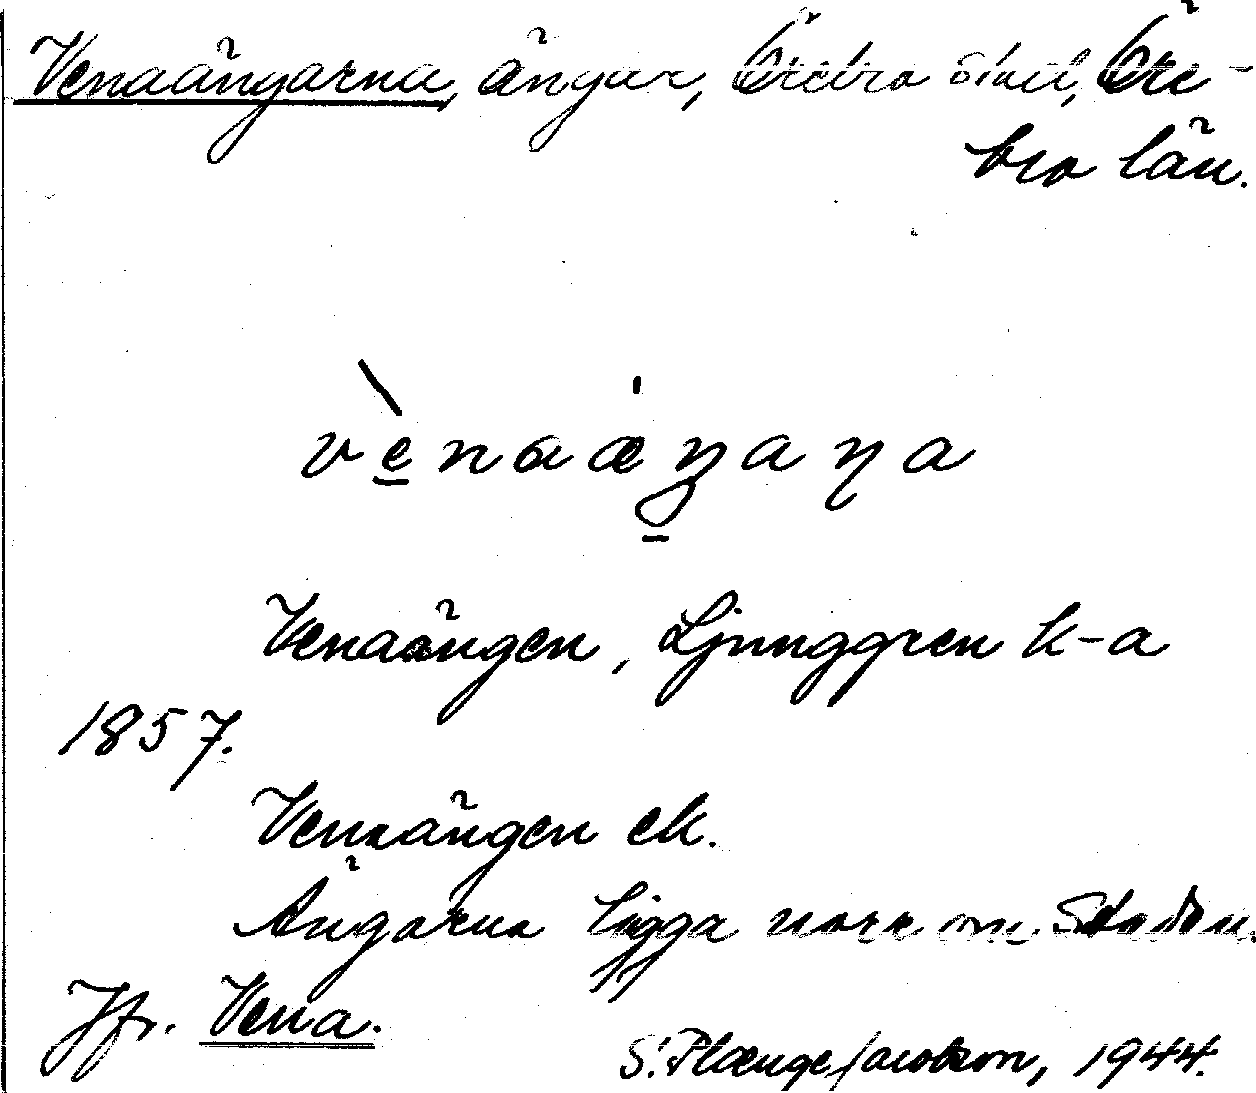 Venaängarna, ängar, Örebro stad, Öre-
bro län.
vènaæŋaɳa
Venaängen, Ljunggren k-a
1857.
Venaängen ek.
Ängarna ligga norr om staden.
Jfr. Vena.
S. Plænge Jacobson, 1944.